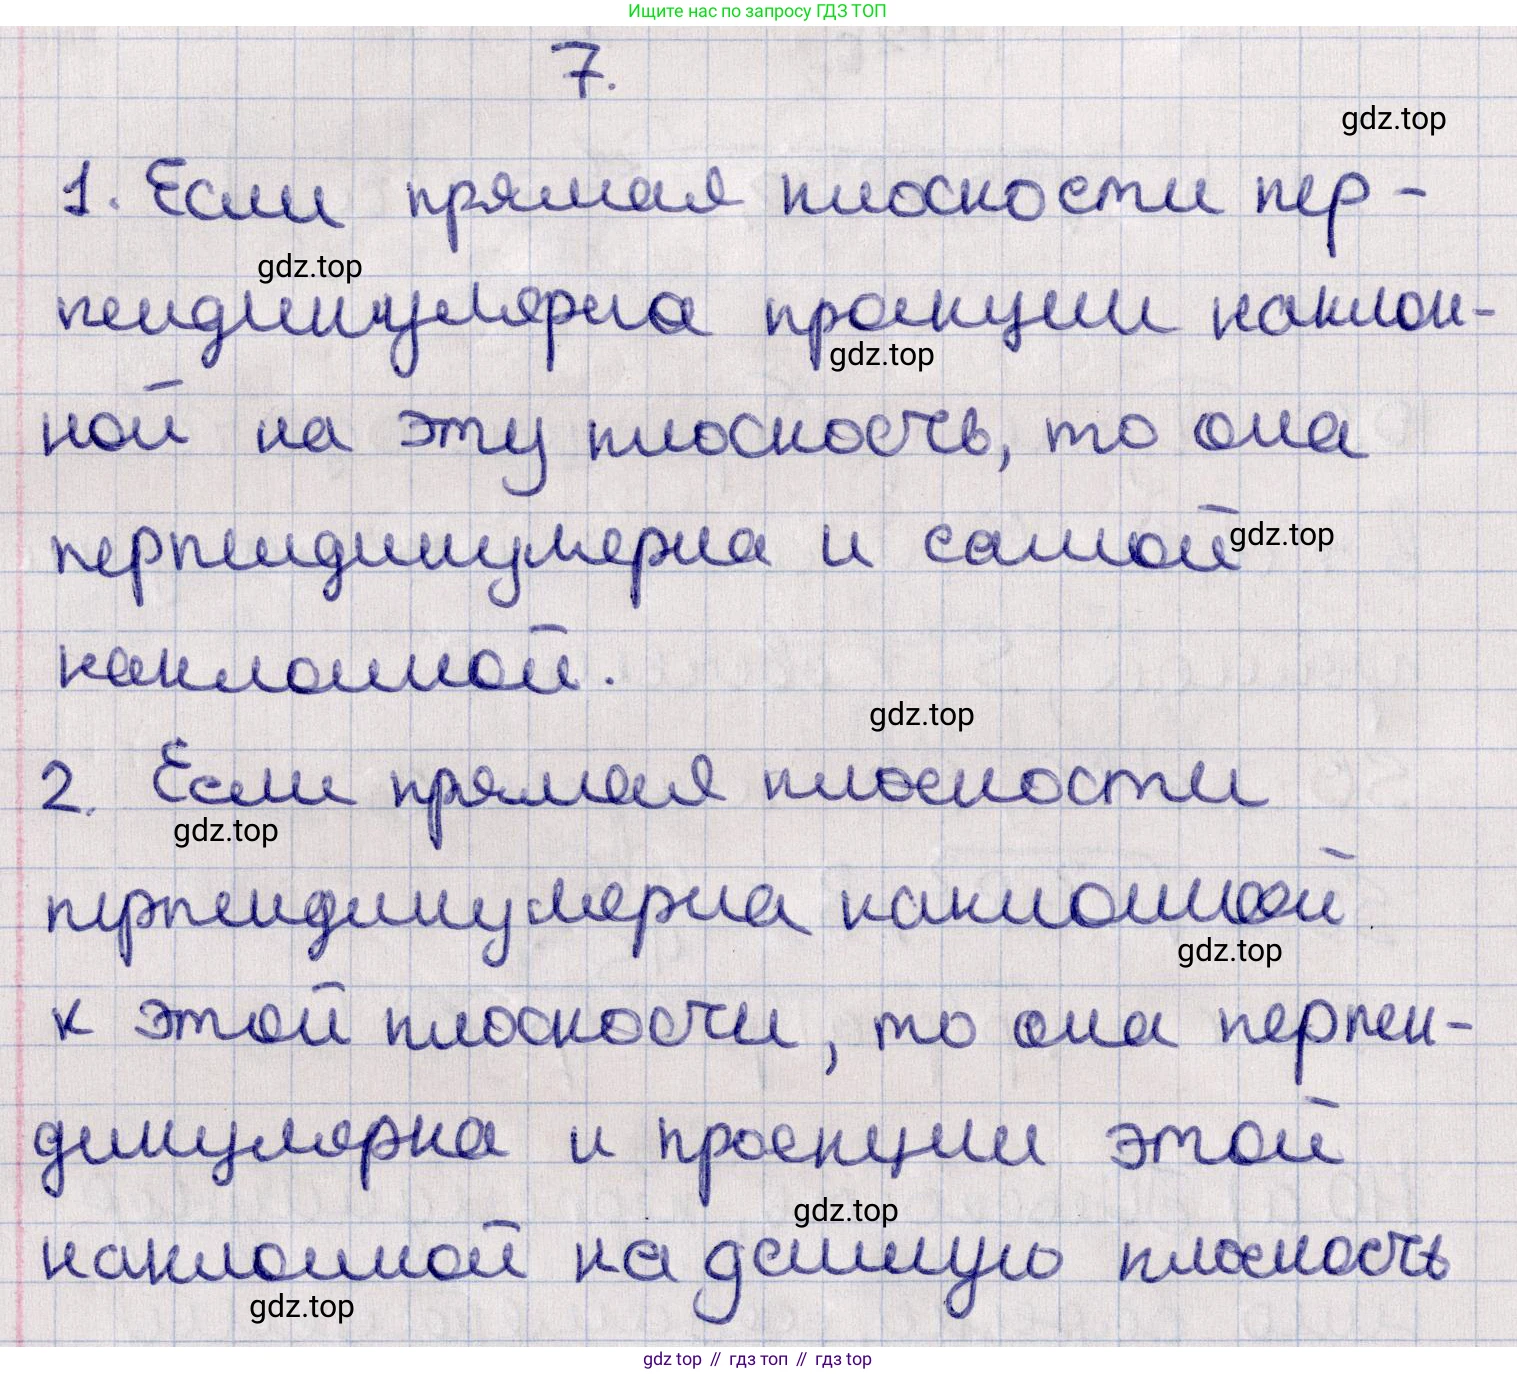 Ищите нас по запросу ГДЗ ТОП
7.
gdz.top
1. Если прямая плоскости пер-
gdz.top
пендикулярна проекции наклон-
gdz.top
ной на эту плоскость, то она
перпендикулярна и самой
gdz.top
наклонной.
gdz.top
2. Если прямая плоскости
gdz.top
перпендикулярна наклонной
gdz.top
к этой плоскости, то она перпен-
дикулярна и проекции этой
gdz.top
наклонной на данную плоскость
gdz.top
gdz top // гдз топ // гдз top